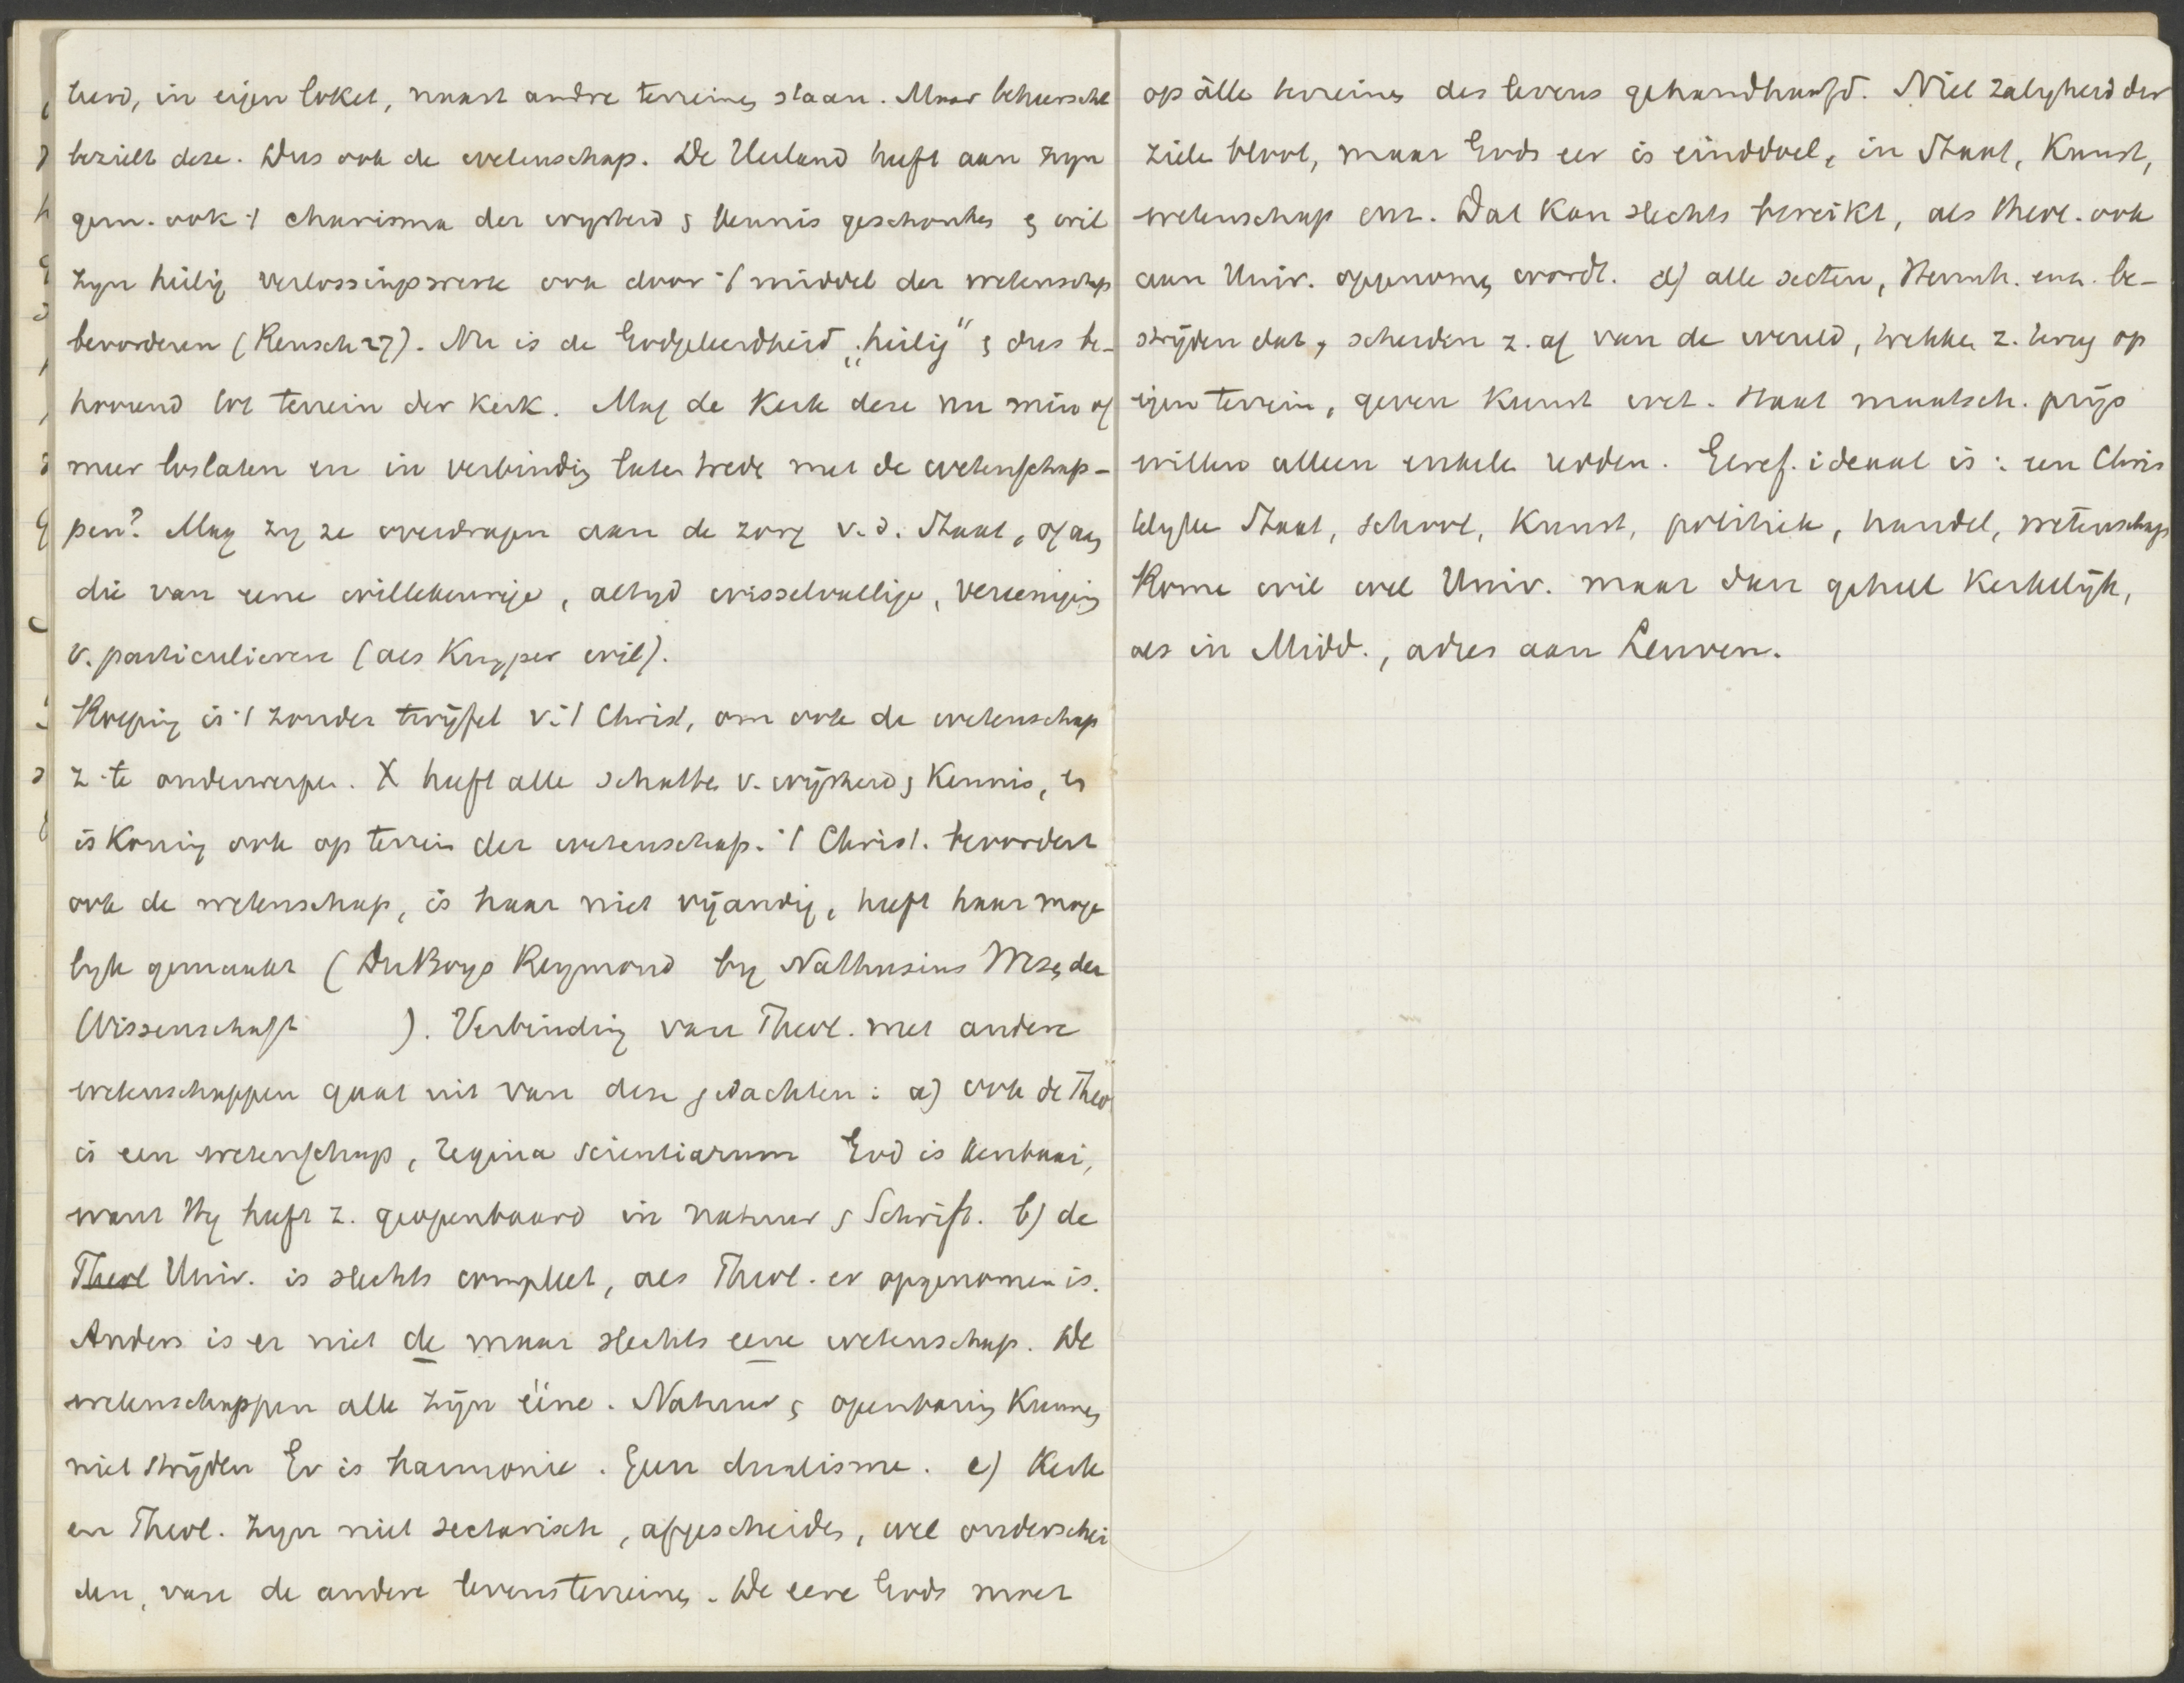 heid, in eigen loket, naast andre terreinen staan. Maar beheerscht
bezielt deze. Dus ook de wetenschap. De Heiland heeft aan zijn
gem. ook 't charisma der wijsheid & kennis geschonken & wil
zijn heilig verlossingswerk ook door 't middel der wetenschap
bevorderen (Rensch 27). Nu is de Godgeleerdheid „heilig" & dus be-
hoorend tot terrein der kerk. Mag de Kerk deze nu min of
meer loslaten en in verbinding laten treden met de wetenschap-
pen? Mag zij ze overdragen aan de zorg v. d. Staat, of aan
die van eene willekeurige, altijd wisselvallige, vereeniging
v. particulieren (als Kuyper wil).
Roeping is 't zonder twijfel v. 't Christ, om ook de wetenschap
z. te onderwerpen. X heeft alle schatten v. wijsheid & Kennis, Hij
is Koning ook op terrein der wetenschap. 't Christ. bevordert
ook de wetenschap, is haar niet vijandig, heeft haar moge
lijk gemaakt (DuBoys Reymond bij Nathusius Wesen der
Wissenschaft ). Verbinding van Theol. met andere
wetenschappen gaat uit van deze gedachten: a) ook de Theol
is een wetenschap, regina scientiarum God is kenbaar,
want Hij heeft z. geopenbaard in natuur & Schrift. b) de
Theol Univ. is slechts compleet, als Theol. er opgenomen is.
Anders is er niet de maar slechts eene wetenschap. De
wetenschappen alle zijn ééne. Natuur & openbaring Kunnen
niet strijden Er is harmonie. Geen dualisme. c) Kerk
en Theol. zijn niet sectarisch, afgescheiden, wel onderschei
den, van de andere levensterreinen. De eere Gods moet
op àlle terreinen des levens gehandhaafd. Niet zaligheid der
ziele bloot, maar Gods eer is einddoel, in Staat, Kunst,
wetenschap enz. Dat Kan slechts bereikt, als theol. ook
aan Univ. opgenomen wordt. d) alle secten, Hernh. enz. be-
strijden dat, scheiden z. af van de wereld, trekken z. terug op
eigen terrein, geven Kunst wet. staat maatsch. prijs
willen alleen enkele redden. Geref. ideaal is: een Chris
telijke Staat, school, Kunst, politiek, handel, wetenschap
Rome wil wel Univ. maar dan geheel Kerkelijk,
als in Midd., adres aan Leuven.